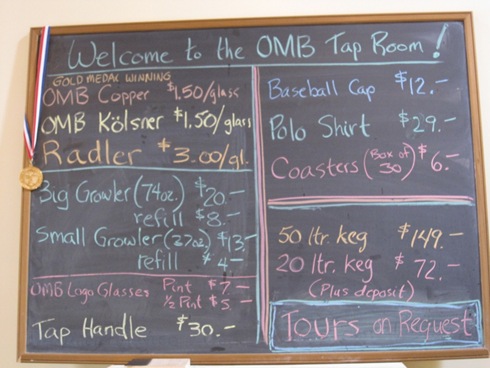 Welcome to the OMB Tap Room!
GOLD MEDAL WINNING
OMB Copper $1.50/glass
OMB Kölsner $1.50/glass
Radler $3.00/gl.
Big Growler (74oz.) $20.-
refill $8.-
Small Growler (32oz.) $13-
refill $4-
OMB Logo Glasses Pint $7-
1/2 Pint $5.-
Tap Handle $30.-
Baseball Cap $12.-
Polo Shirt $29.-
Coasters (Box of 30) $6.-
50 ltr. keg $149.-
20 ltr. keg $72.-
(Plus deposit)
Tours on Request